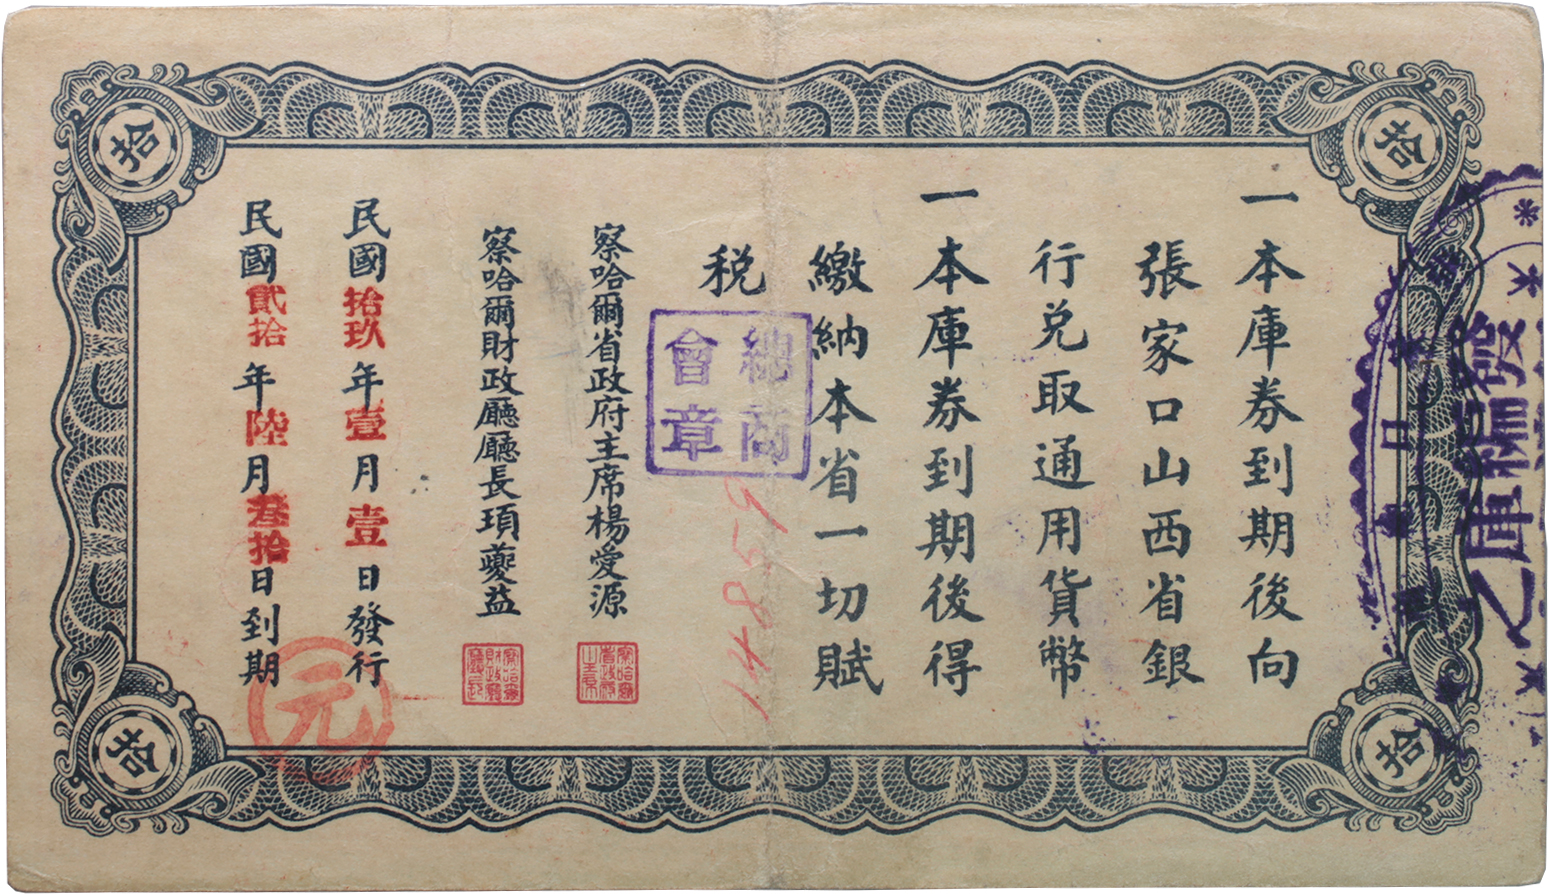 一本庫券到期後向
張家口山西省銀
行兌取通用貨幣
一本庫券到期後得
繳納本省一切賦
税
察哈爾省政府主席楊愛源
察哈爾財政廳廳長項夔益
民國拾玖年壹月壹日發行
民國貳拾年陸月叁拾日到期
拾
拾
拾
拾
總商會章
元